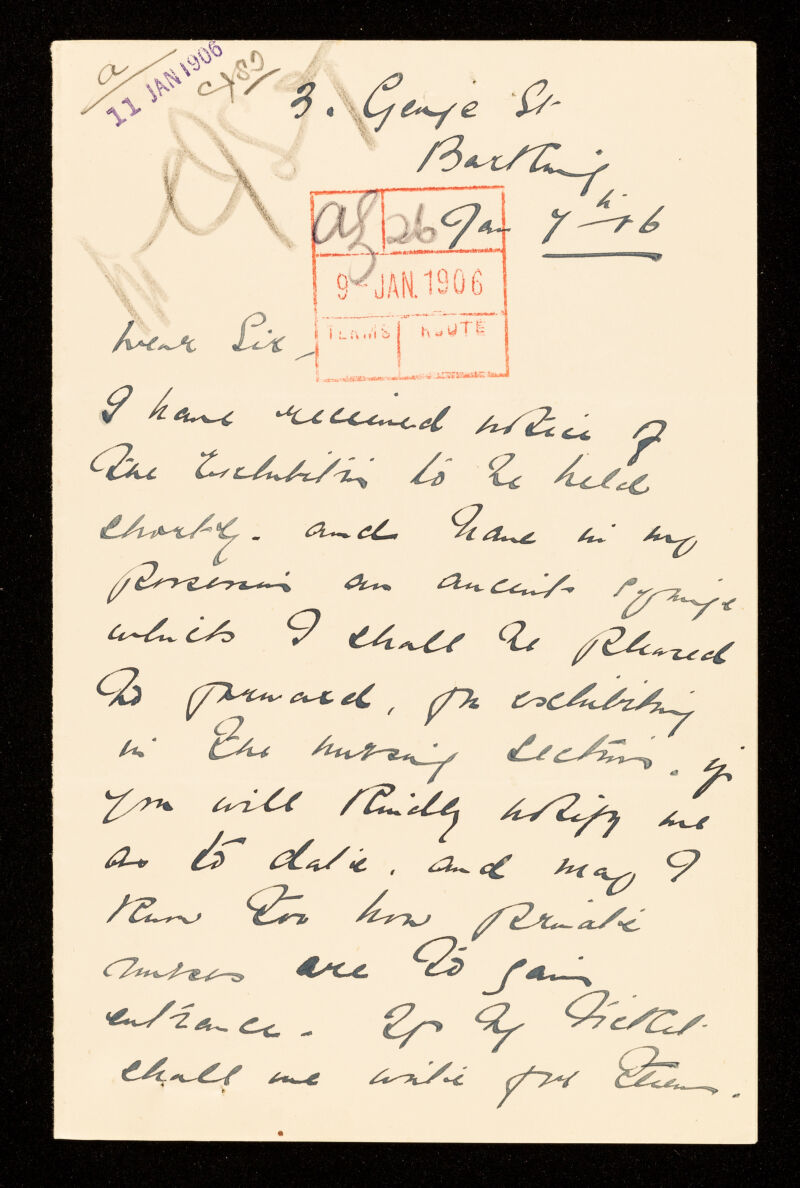 a
11 JAN 1906
3. George St
Barking
26 Jan 7th 06
9 - JAN. 1906
TERMS ROUTE
Dear Sir -
I have received notice of
the Exhibition to be held
shortly. and have in my
Possession an ancient syringe
which I shall be pleased
to forward, for exhibiting
in the nursing section. if
you will kindly notify me
as to date. and may I
know too how Private
nurses are to gain
entrance. If by Ticket
shall we write for them.